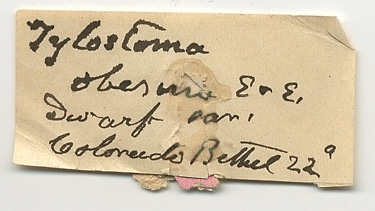 Tylostoma
obesum E & E.
Dwarf var.
Colorado Bethel 22a